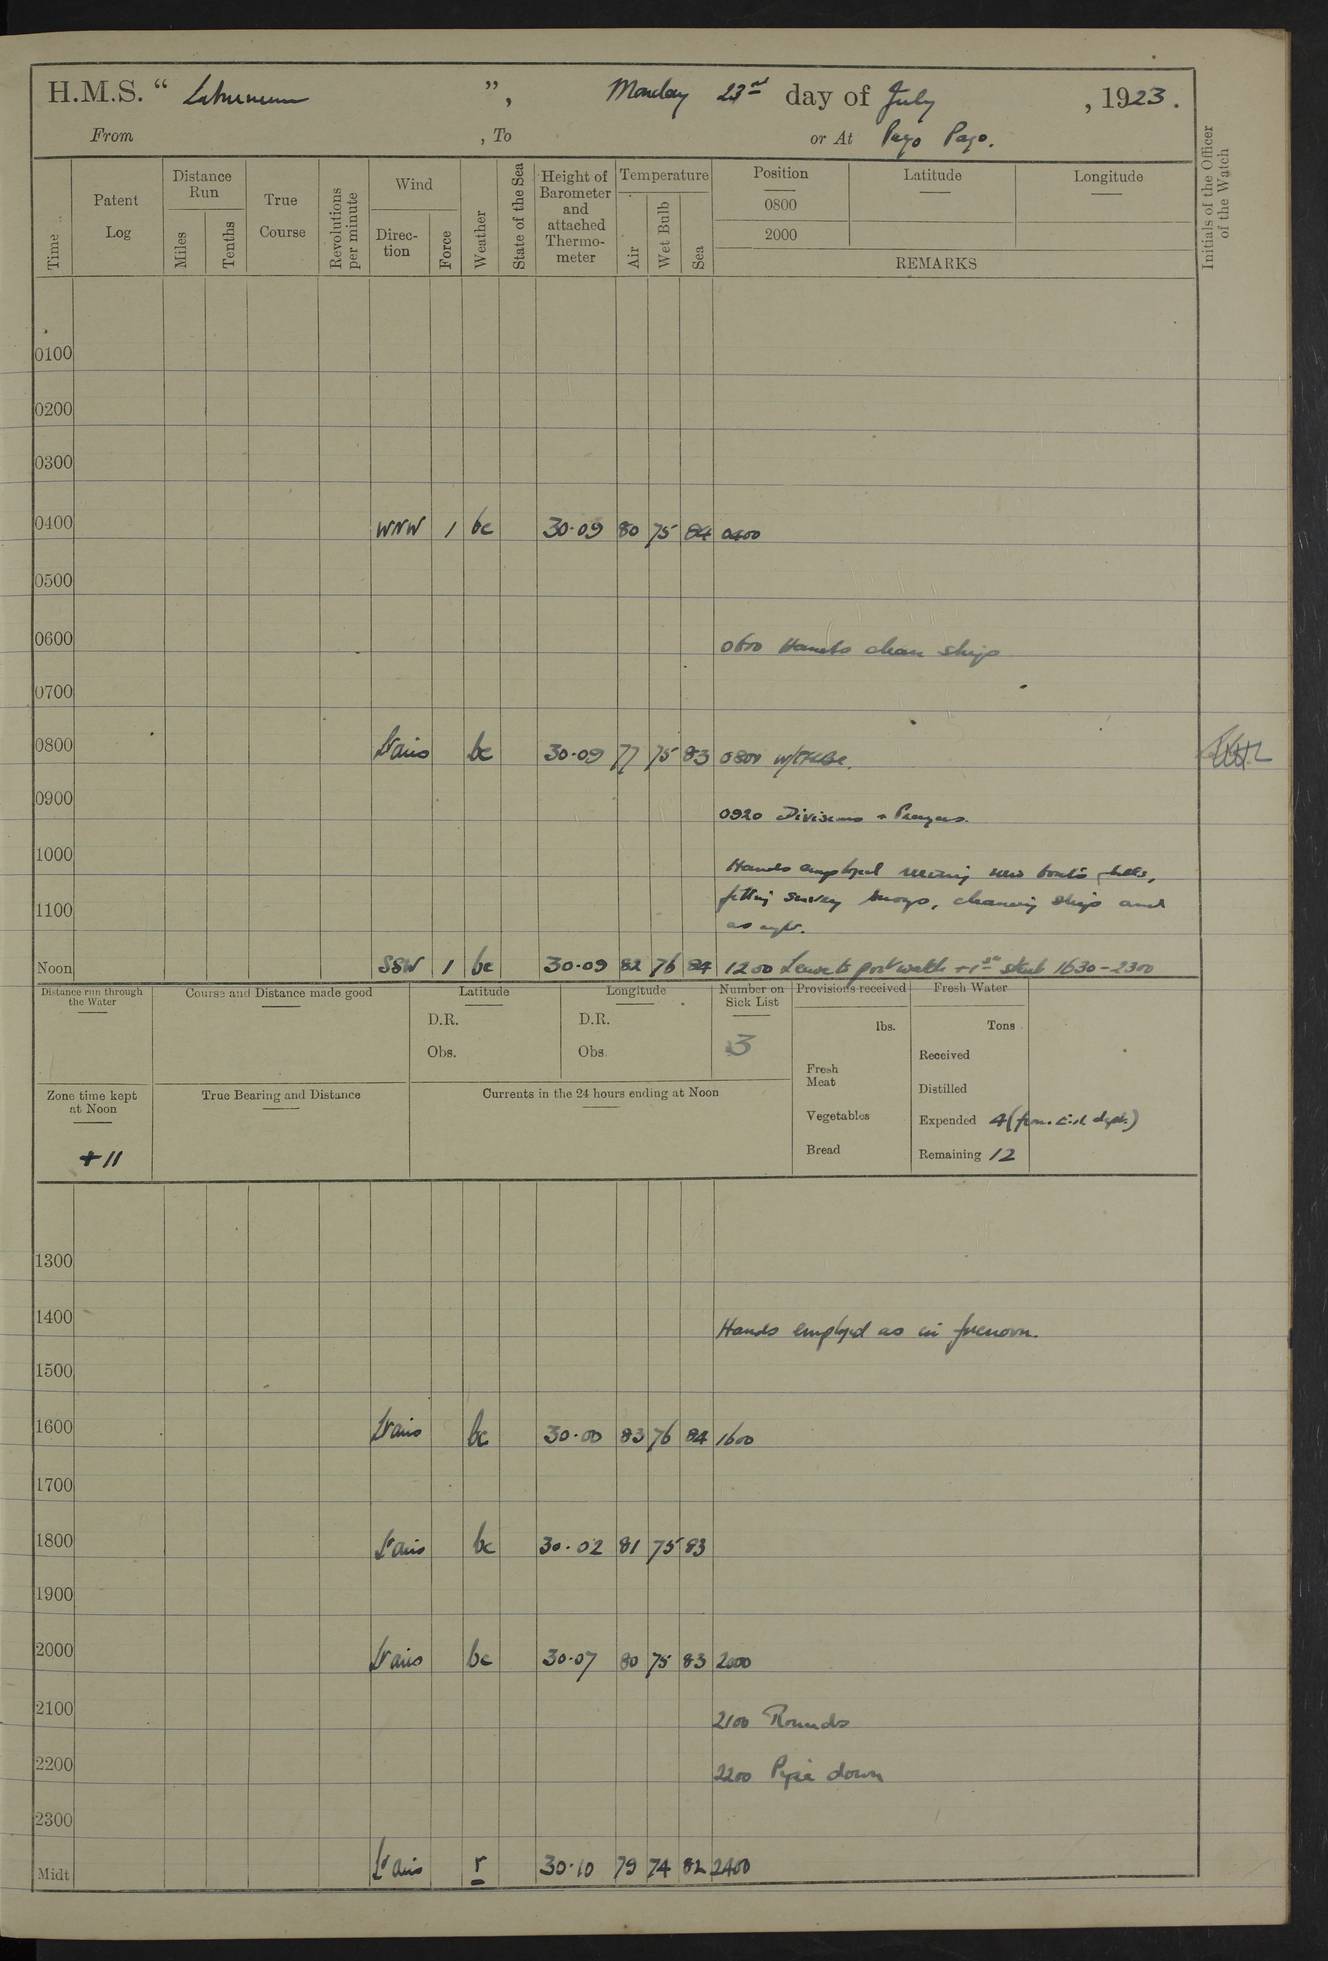 H.M.S. “ Laburnum ”, Monday 23rd day of July , 1923.
From , To or At Pago Pago.
Time Patent Log Distance Run Miles Tenths True Course Revolutions per minute Wind Direction Force Weather State of the Sea Height of Barometer and attached Thermometer Temperature Air Wet Bulb Sea Position 0800 2000 Latitude Longitude
REMARKS
Initials of the Officer of the Watch
0100
0200
0300
0400 WNW 1 bc 30·09 80 75 84 0400
0500
0600 0600 Hands clean ship
0700
0800 Lt airs bc 30·09 77 75 83 0800
0900 0920 Divisions + Prayers.
1000 Hands employed reeving new boats falls,
1100 fitting survey buoys, cleaning ship and
as reqte.
Noon SSW 1 bc 30·09 82 76 84 1200 Leave to port watch + 1st start 1630-2300
Distance run through the Water
Course and Distance made good
Latitude
D.R.
Obs.
Longitude
D.R.
Obs.
Number on Sick List
3
Provisions received
lbs.
Fresh Meat
Vegetables
Bread
Fresh Water
Tons
Received
Distilled
Expended 4 (from E.R. dept.)
Remaining 12
Zone time kept at Noon
+11
True Bearing and Distance
Currents in the 24 hours ending at Noon
1300
1400 Hands employed as in forenoon.
1500
1600 Lt airs bc 30·00 83 76 84 1600
1700
1800 Lt airs bc 30·02 81 75 83
1900
2000 Lt airs bc 30·07 80 75 83 2000
2100 2100 Rounds
2200 2200 Pipe down
2300
Midt Lt airs r 30·10 79 74 82 2400